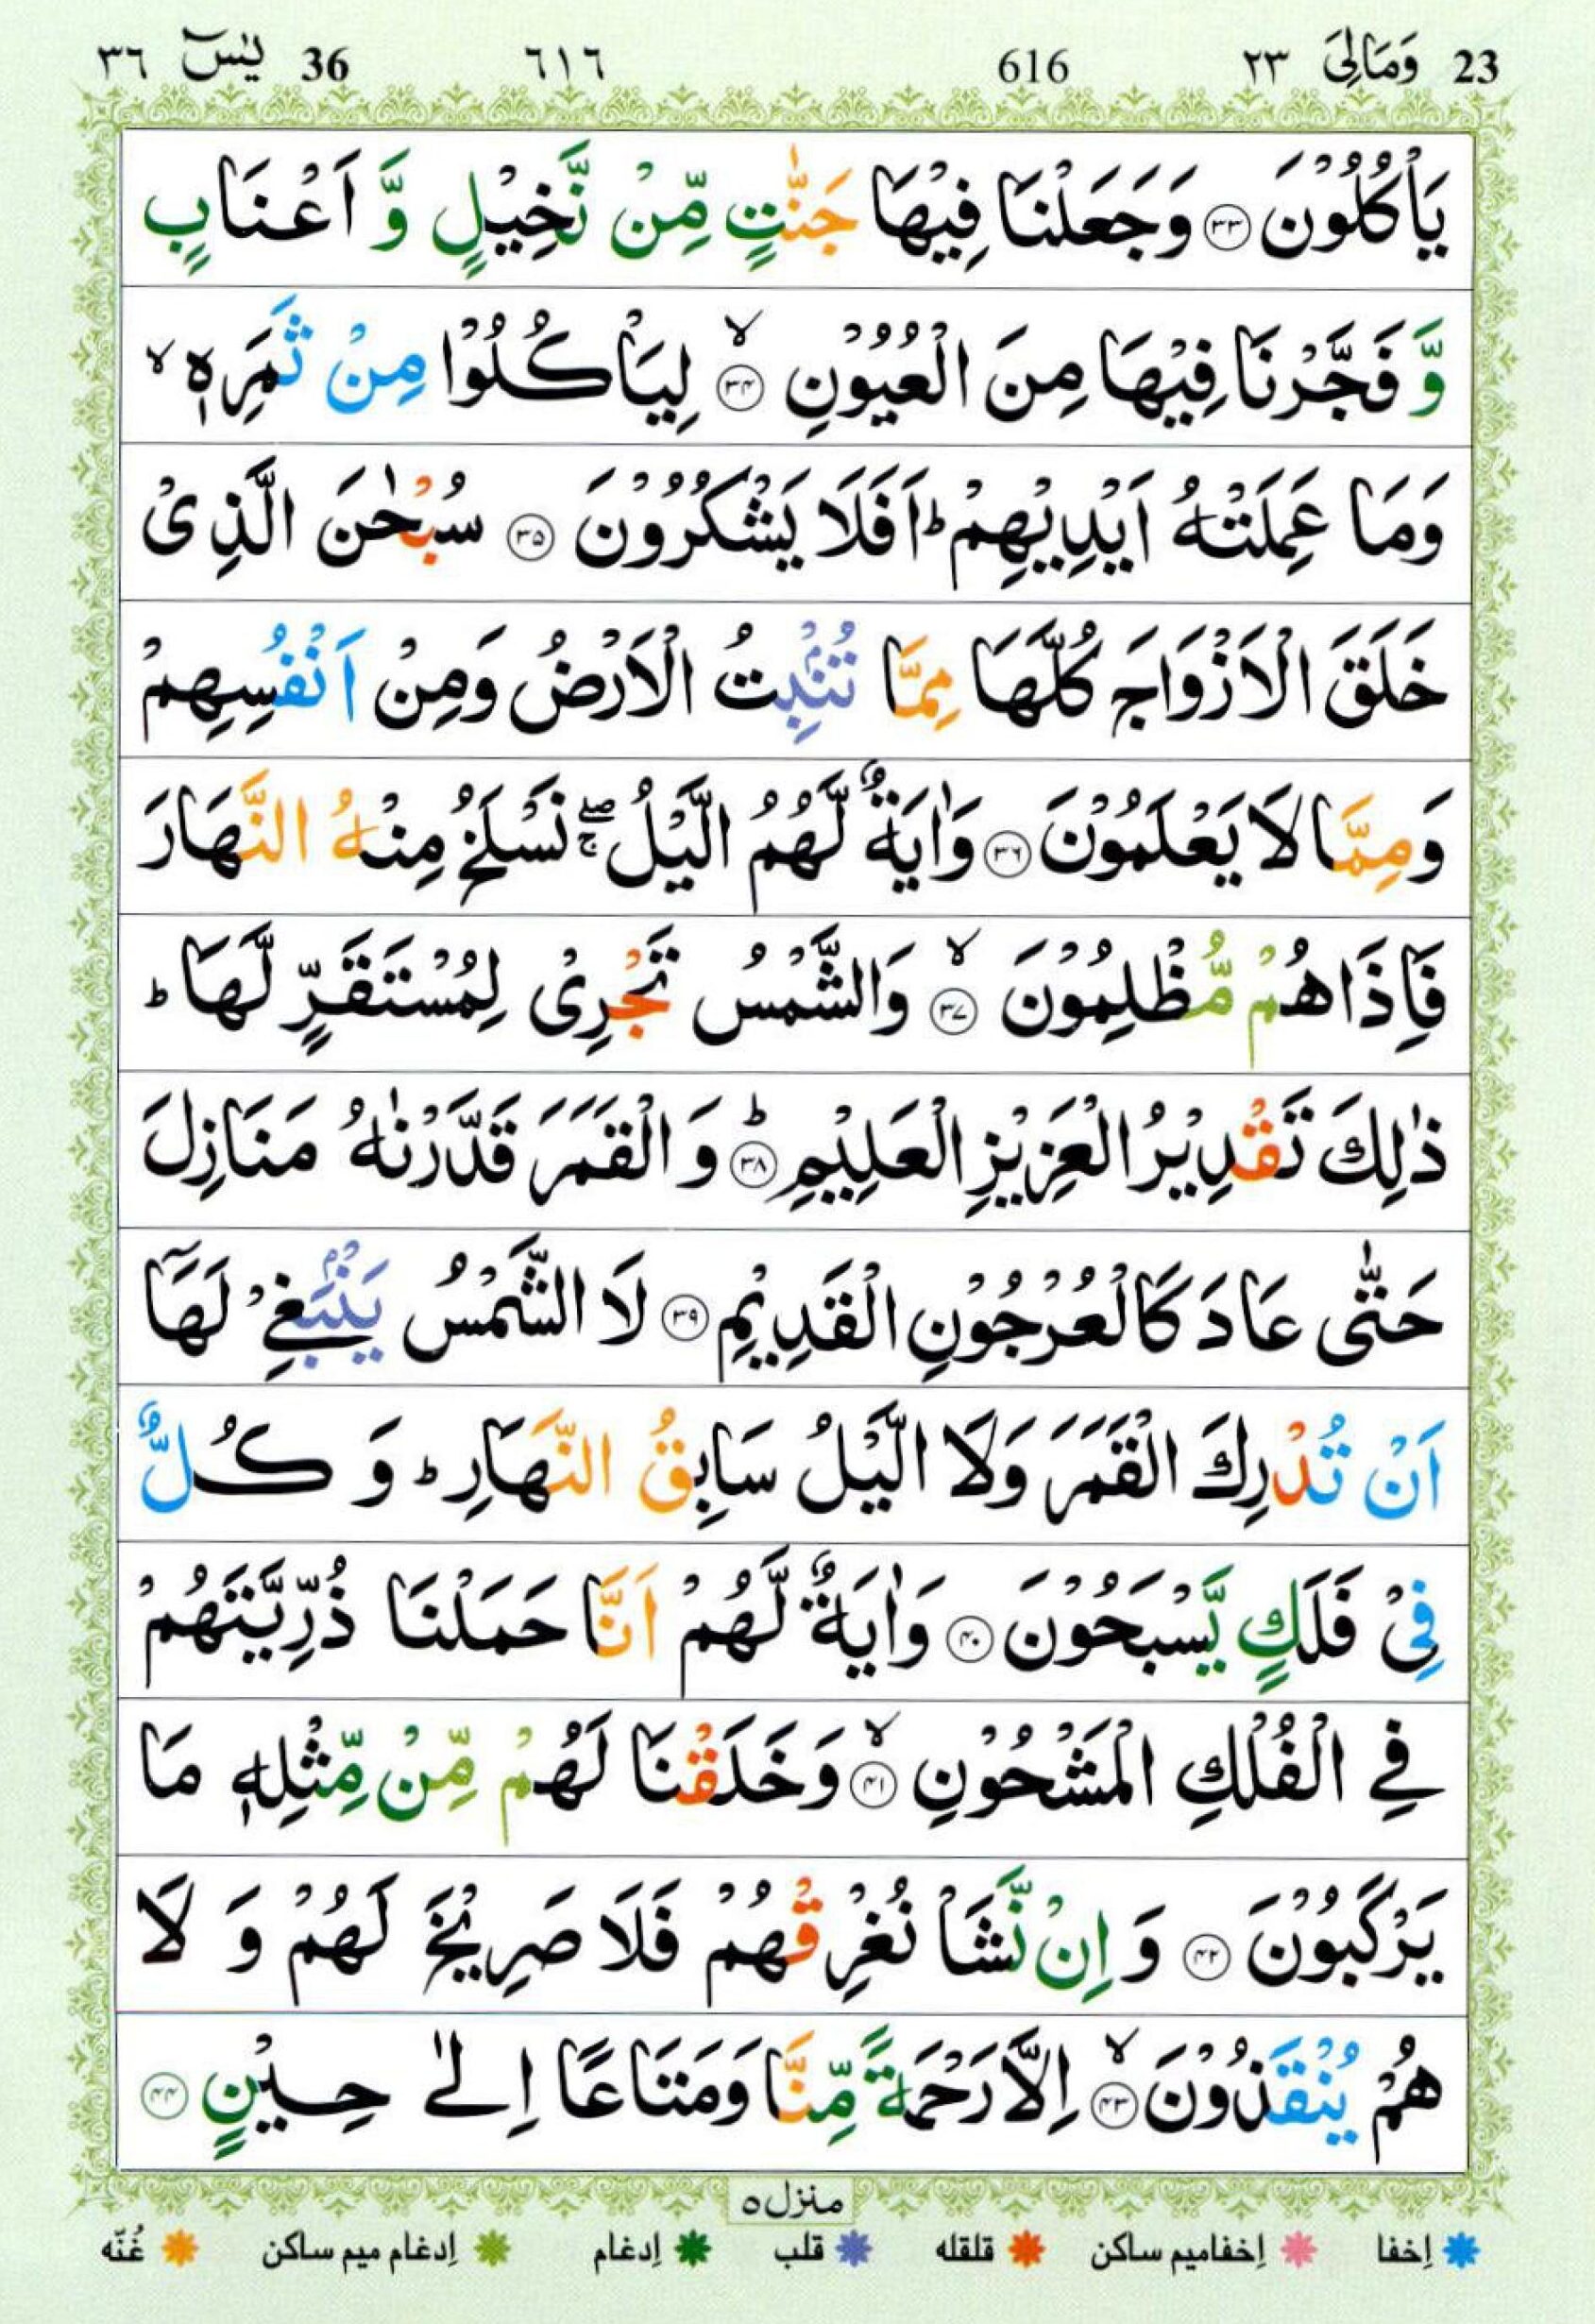 23 وَمَالِیَ ٢٣ 616 ٦١٦ 36 یٰسٓ ٣٦
يَاْكُلُوْنَ ۝٣٣ وَجَعَلْنَا فِيْهَا جَنّٰتٍ مِّنْ نَّخِيْلٍ وَّ اَعْنَابٍ
وَّ فَجَّرْنَا فِيْهَا مِنَ الْعُيُوْنِ ۝٣٤ۙ لِيَاْكُلُوْا مِنْ ثَمَرِهٖ ۙ
وَمَا عَمِلَتْهُ اَيْدِيْهِمْ ؕ اَفَلَا يَشْكُرُوْنَ ۝٣٥ سُبْحٰنَ الَّذِىْ
خَلَقَ الْاَزْوَاجَ كُلَّهَا مِمَّا تُنْۢبِتُ الْاَرْضُ وَمِنْ اَنْفُسِهِمْ
وَمِمَّا لَا يَعْلَمُوْنَ ۝٣٦ وَاٰيَةٌ لَّهُمُ الَّيْلُ ۖۚ نَسْلَخُ مِنْهُ النَّهَارَ
فَاِذَا هُمْ مُّظْلِمُوْنَ ۝٣٧ۙ وَالشَّمْسُ تَجْرِىْ لِمُسْتَقَرٍّ لَّهَا ؕ
ذٰلِكَ تَقْدِيْرُ الْعَزِيْزِ الْعَلِيْمِ ۝٣٨ؕ وَ الْقَمَرَ قَدَّرْنٰهُ مَنَازِلَ
حَتّٰى عَادَ كَالْعُرْجُوْنِ الْقَدِيْمِ ۝٣٩ لَا الشَّمْسُ يَنْۢبَغِىْ لَهَاۤ
اَنْ تُدْرِكَ الْقَمَرَ وَلَا الَّيْلُ سَابِقُ النَّهَارِ ؕ وَ كُلٌّ
فِىْ فَلَكٍ يَّسْبَحُوْنَ ۝٤٠ وَاٰيَةٌ لَّهُمْ اَنَّا حَمَلْنَا ذُرِّيَّتَهُمْ
فِى الْفُلْكِ الْمَشْحُوْنِ ۝٤١ۙ وَخَلَقْنَا لَهُمْ مِّنْ مِّثْلِهٖ مَا
يَرْكَبُوْنَ ۝٤٢ وَ اِنْ نَّشَاْ نُغْرِقْهُمْ فَلَا صَرِيْخَ لَهُمْ وَ لَا
هُمْ يُنْقَذُوْنَ ۝٤٣ۙ اِلَّا رَحْمَةً مِّنَّا وَمَتَاعًا اِلٰى حِيْنٍ ۝٤٤
منزل ٥
اِخفا اِخفامیم ساکن قلقله قلب اِدغام اِدغام میم ساکن غُنّه